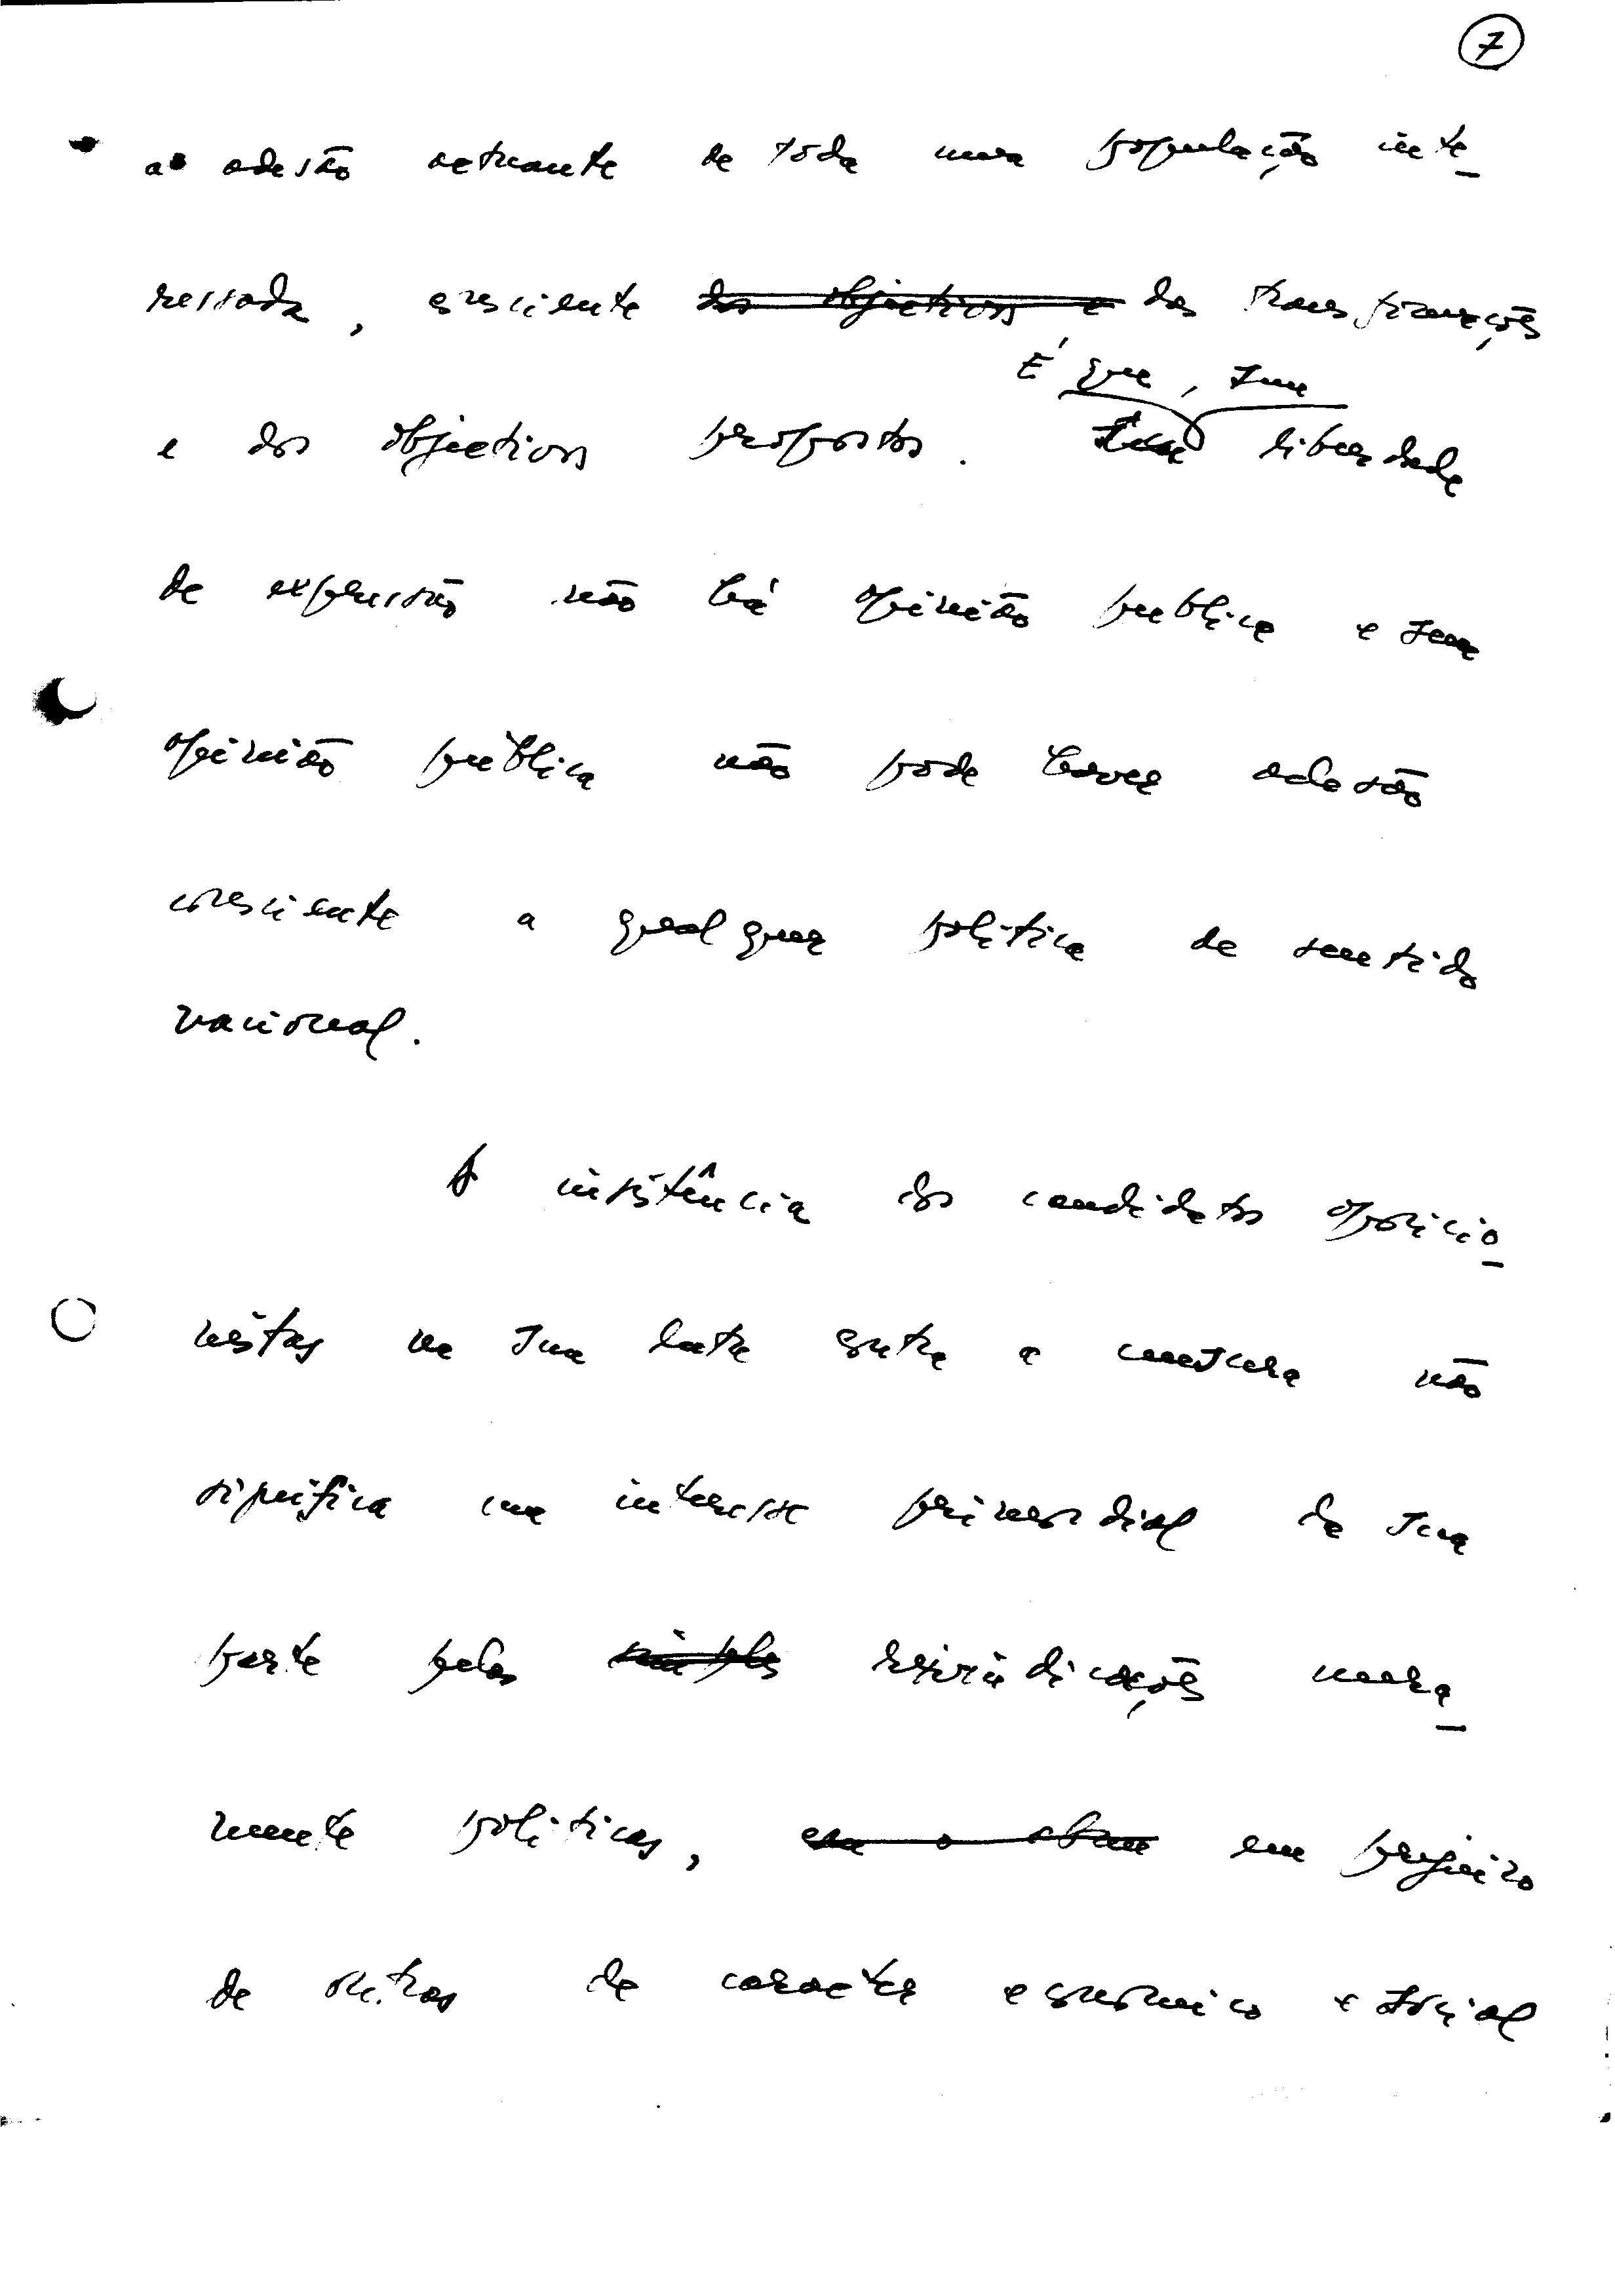 7
a adesão actuante de toda uma população inte
ressada, consciente dos objectivos e das transformações
É que, sem
e dos objectivos propostos. Sem liberdade
de expressão não há opinião publica e sem
opinião pública não pode haver adesão
consciente a qualquer politica de sentido
nacional.
A insistência dos candidatos oposicio
nistas na sua luta contra a censura não
significa um interesse primordial da sua
parte pelas simples reivindicações mera
mente politicas, em prejuizo
de outras de caracter economico e social